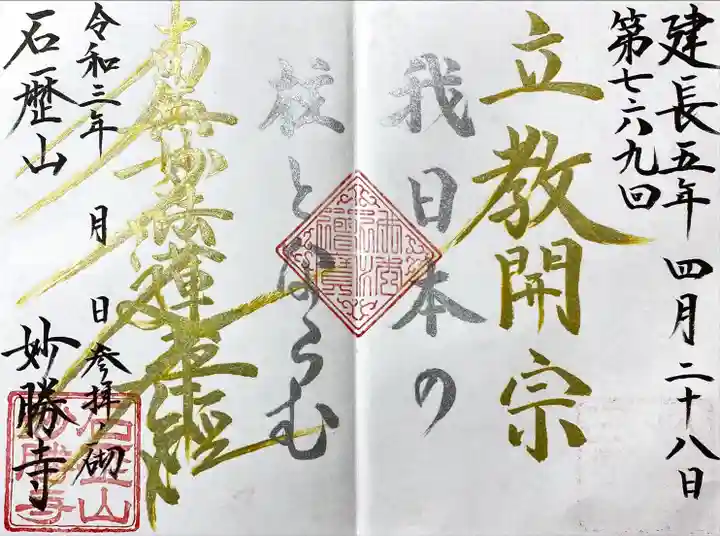 建長五年 四月二十八日
第七六九回
立教開宗
我日本の
柱とならむ
南無妙法蓮華経
令和三年 月 日 参拝之砌
石歴山
妙勝寺
石歴山
妙勝寺